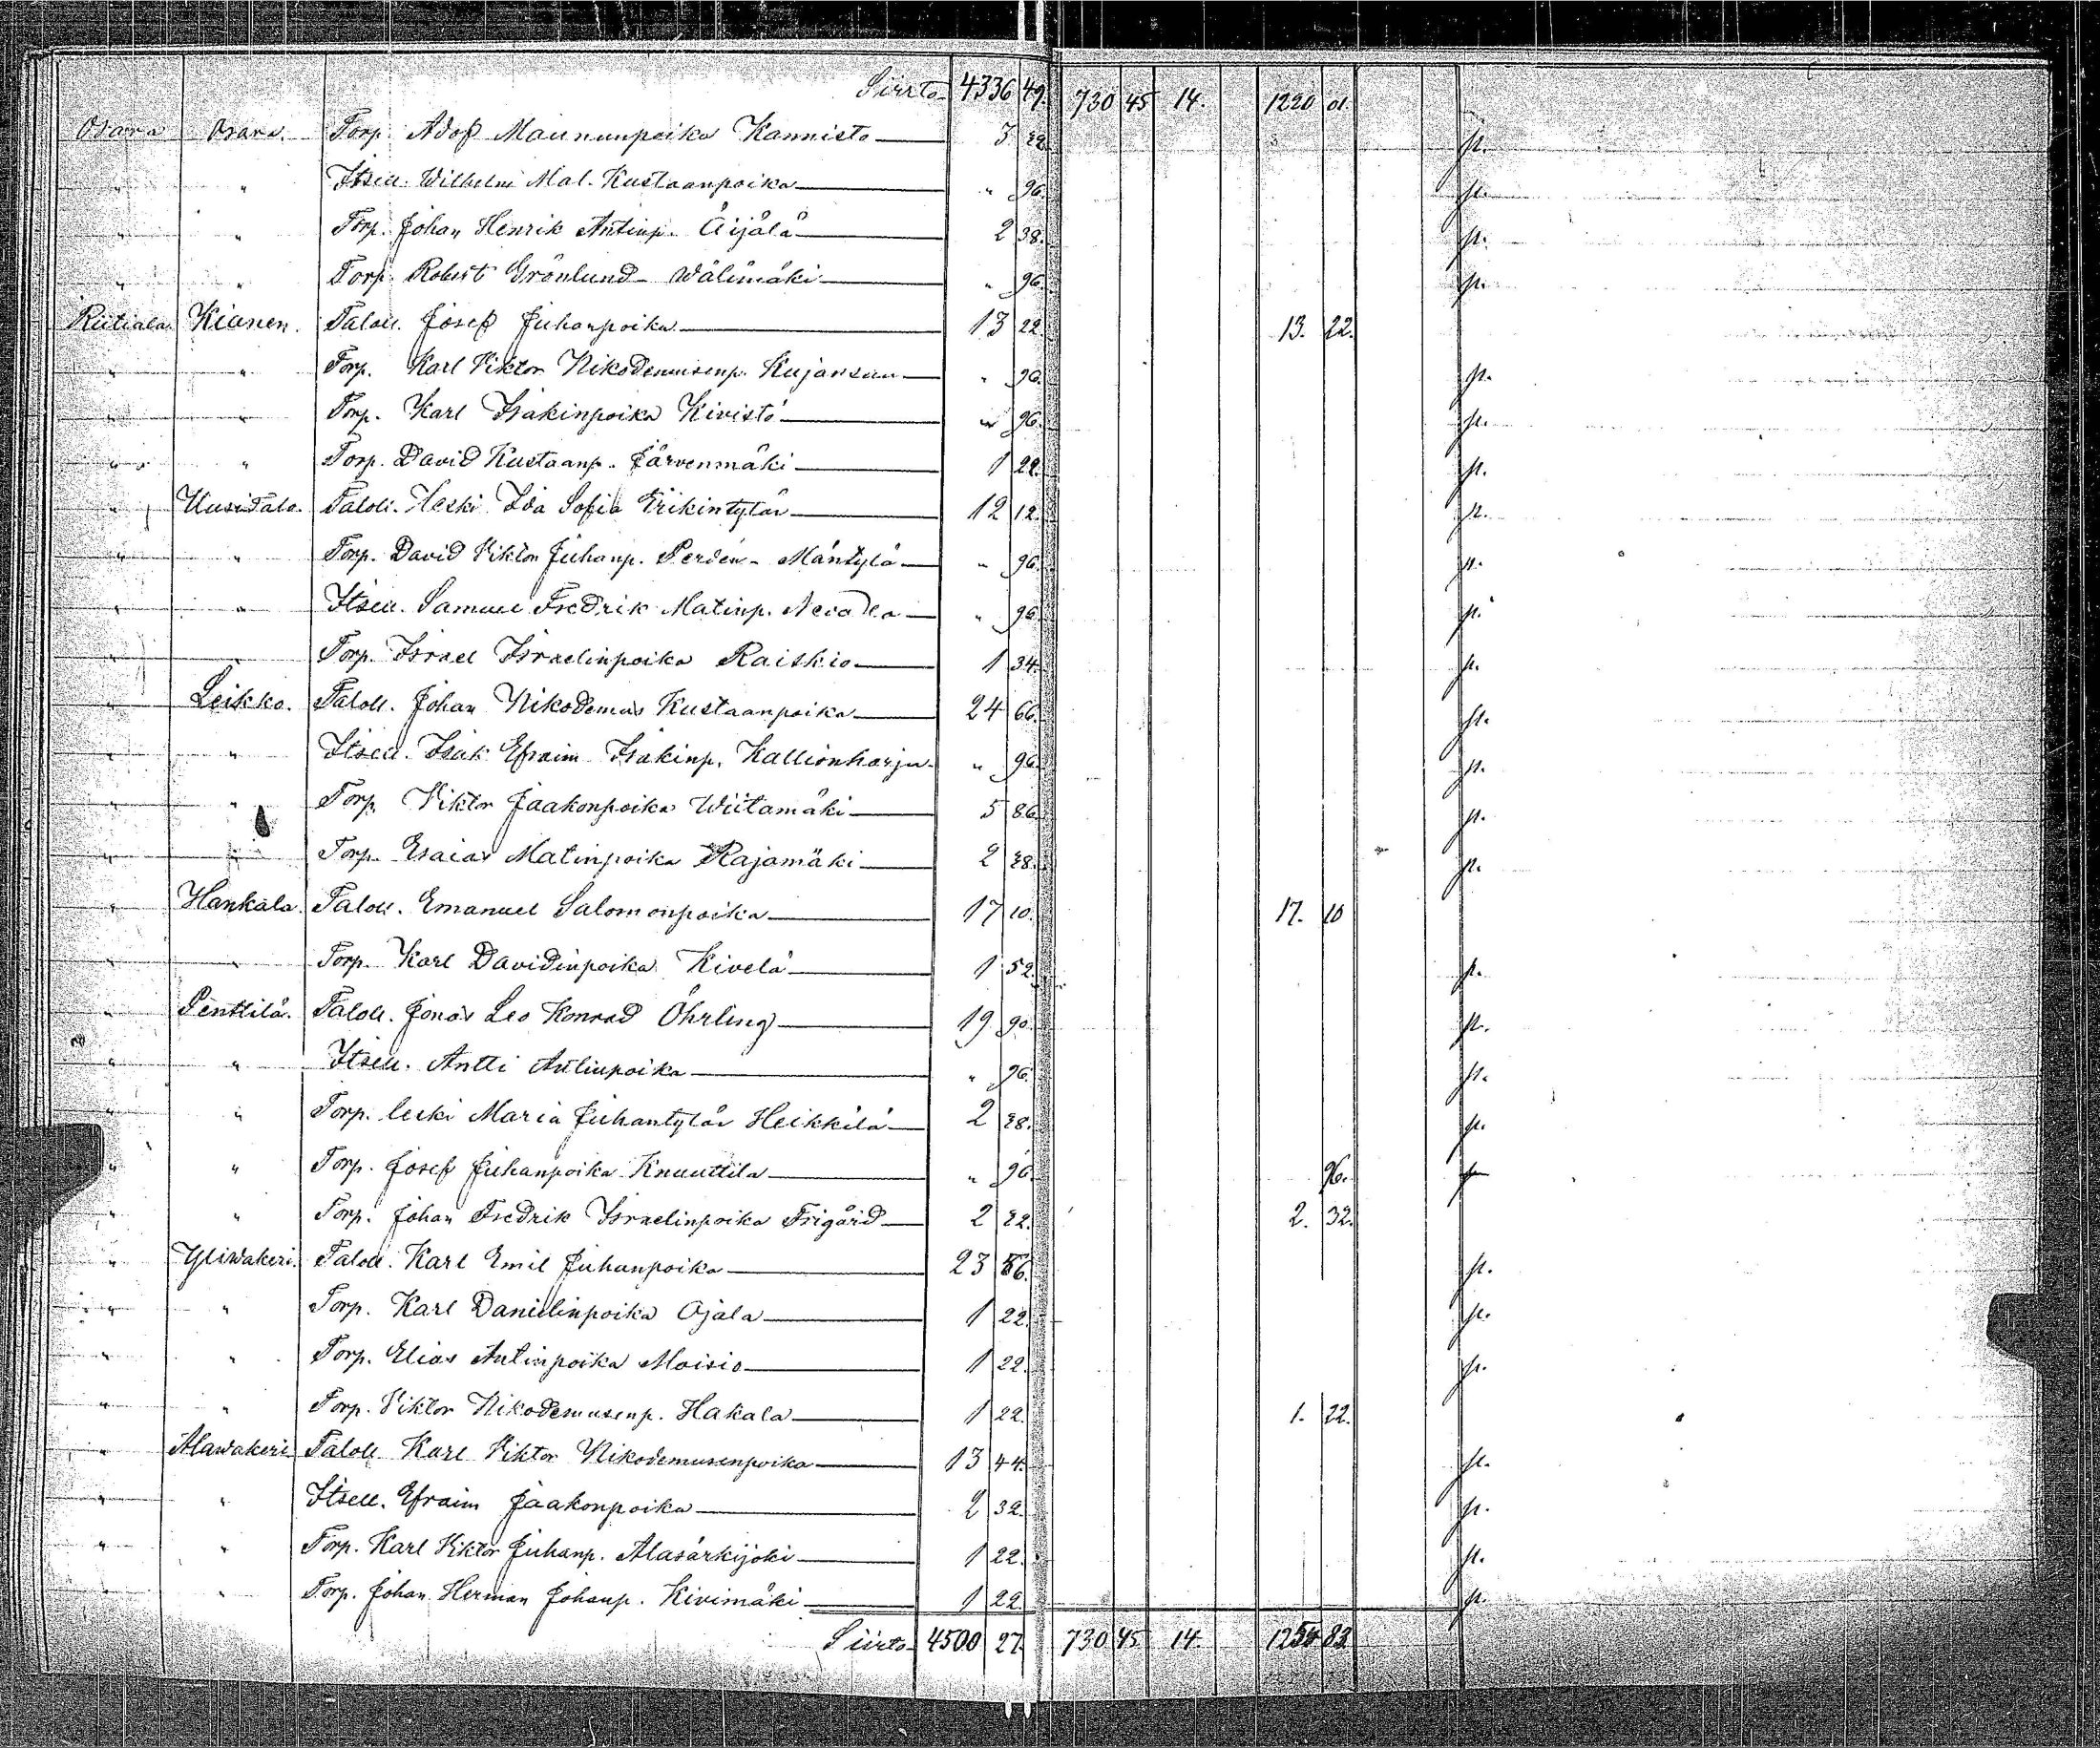 Siirto 4336 49. 730 45 14. 1220 01.
Osara Osara. Torp. Adolf Maununpoika Kannisto 3 22 st.
" " Itsell. Wilhelmi Mat. Kustaanpoika " 96. st.
" " Torp. Johan Henrik Antinp. Äijälä 2 38. st.
" " Torp. Robert Grönlund - Wälimäki " 96. st.
Riitiala Kianen. Taloll. Josef Juhanpoika 13 22. 13. 22.
" " Torp. Karl Viktor Nikodemusenp. Kujansuu " 96. st.
" " Torp. Karl Isakinpoika Kivistö " 96. st.
" " Torp. David Kustaanp. Järvenmäki 1 22. st.
" Uusitalo. Taloll. Leski Ida Sofia Erikintytär 12 12. st.
" " Torp. David Viktor Juhanp. Perdén - Mäntylä " 96. st.
" " Itsell. Samuel Fredrik Matinp. " 96. st.
" " Torp. Israel Israelinpoika Raiskio 1 34. st.
" Leikko. Taloll. Johan Nikodemus Kustaanpoika 24 66. st.
" " Itsell. Isak Efraim Isakinp. Kallionharju " 96. st.
" " Torp. Viktor Jaakonpoika Wiitamäki 5 86. st.
" " Torp. Esaias Matinpoika Rajamäki 2 28. st.
" Hankala. Taloll. Emanuel Salomonpoika 17 10. 17. 10
" " Torp. Karl Davidinpoika Kivelä 1 52. st.
" Penttilä. Taloll. Jonas Leo Konrad Öhrling 19 90. st.
" " Itsell. Antti Antinpoika " 96. st.
" " Torp. leski Maria Juhantytär Heikkilä 2 28. st.
" " Torp. Josef Juhanpoika Knuuttila " 96. 96.
" " Torp. Johan Fredrik Israelinpoika Frigård 2 32. 2. 32.
" Yliwakeri. Taloll. Karl Emil Juhanpoika 23 56. st.
" " Torp. Karl Danielinpoika Ojala 1 22. st.
" " Torp. Elias Antinpoika Moisio 1 22. st.
" " Torp. Viktor Nikodemusenp. Hakala 1 22. 1. 22.
" Alawakeri Taloll. Karl Viktor Nikodemusenpoika 13 44. st.
" " Itsell. Efraim Jaakonpoika 2 32. st.
" " Torp. Karl Viktor Juhanp. Alasärkijoki 1 22. st.
" " Torp. Johan Herman Johanp. Kivimäki 1 22. st.
Siirto 4500 27. 730 45 14. 1254 83